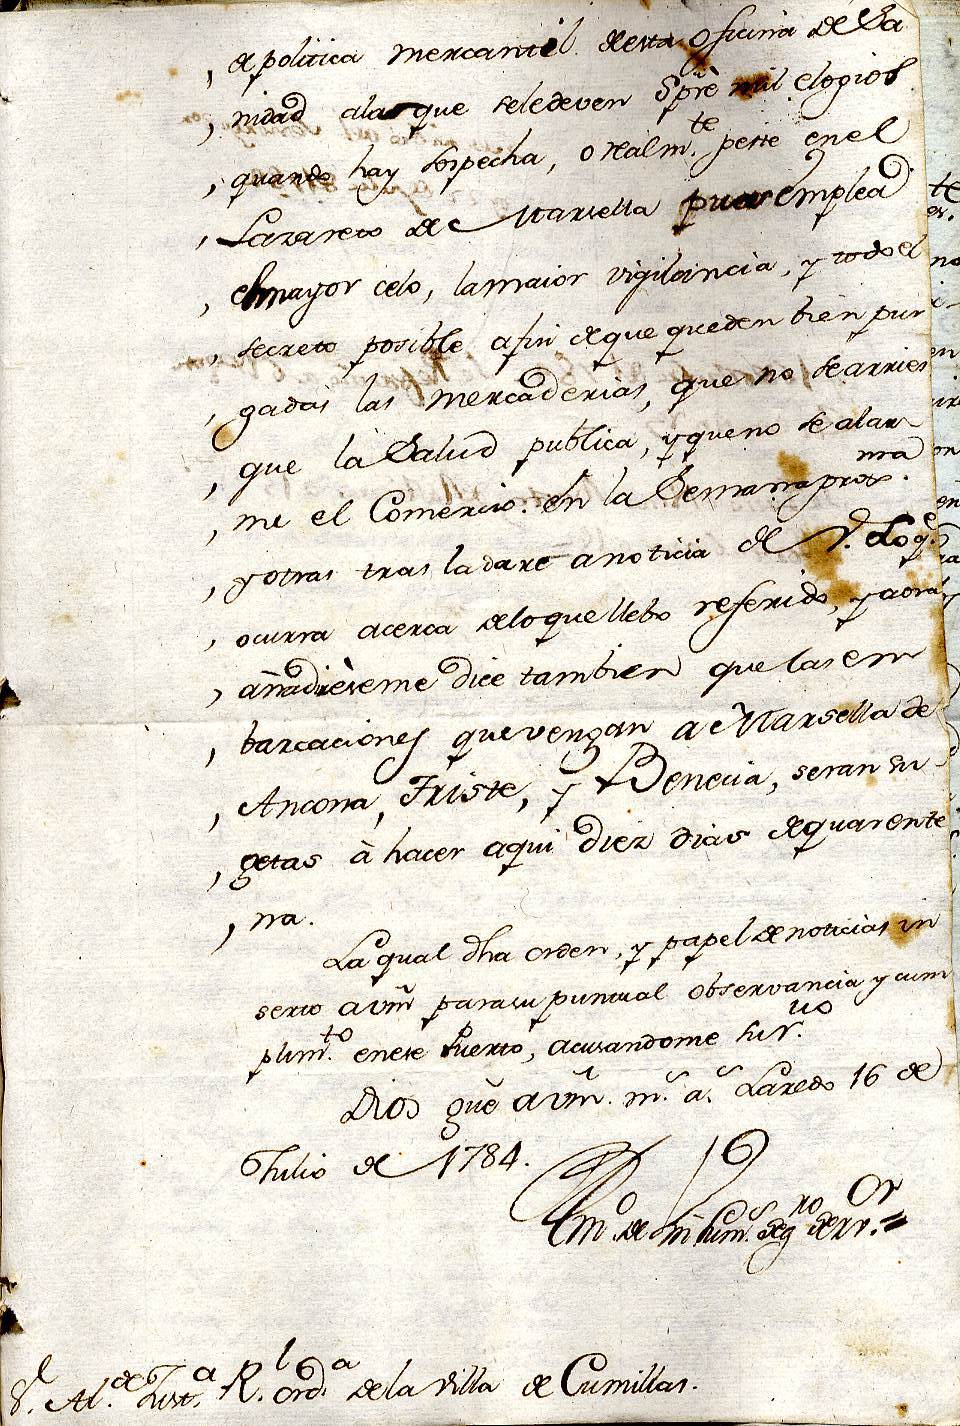 , de politica mercantil desta Oficina de Sa
, nidad alas que sele deven Spre mil elogios
, quando hay sospecha, o realmte. peste en el
, Lazareto de Marsella pues emplead
, el mayor celo, la maior vigilancia, y todo el
, secreto posible afin de que queden bien pur
, gadas las mercaderias, que no se arries
, que la Salud publica, y que no se alar
, me el Comercio. En la Semana proxma.
, y otras trasladare a noticia de V. lo qe.
, ocurra acerca de lo que llebo referido, y aora
, añadire se me dice tambien que las em
, barcaciones que vengan a Marsella de
, Ancona, Triste, y Benecia, seran su
, getas à hacer aqui diez dias de quarente
, na.
La qual dha orden, y papel de noticias in
serto a vm para su puntual observancia y cum
plimto. en ese Puerto, acusandome su rvo.
Dios gue a vm. ms. as. Laredo 16 de
Julio de 1784.
de
Sr. Alde. Justa. Rl. orda. de la Villa de Cumillas.